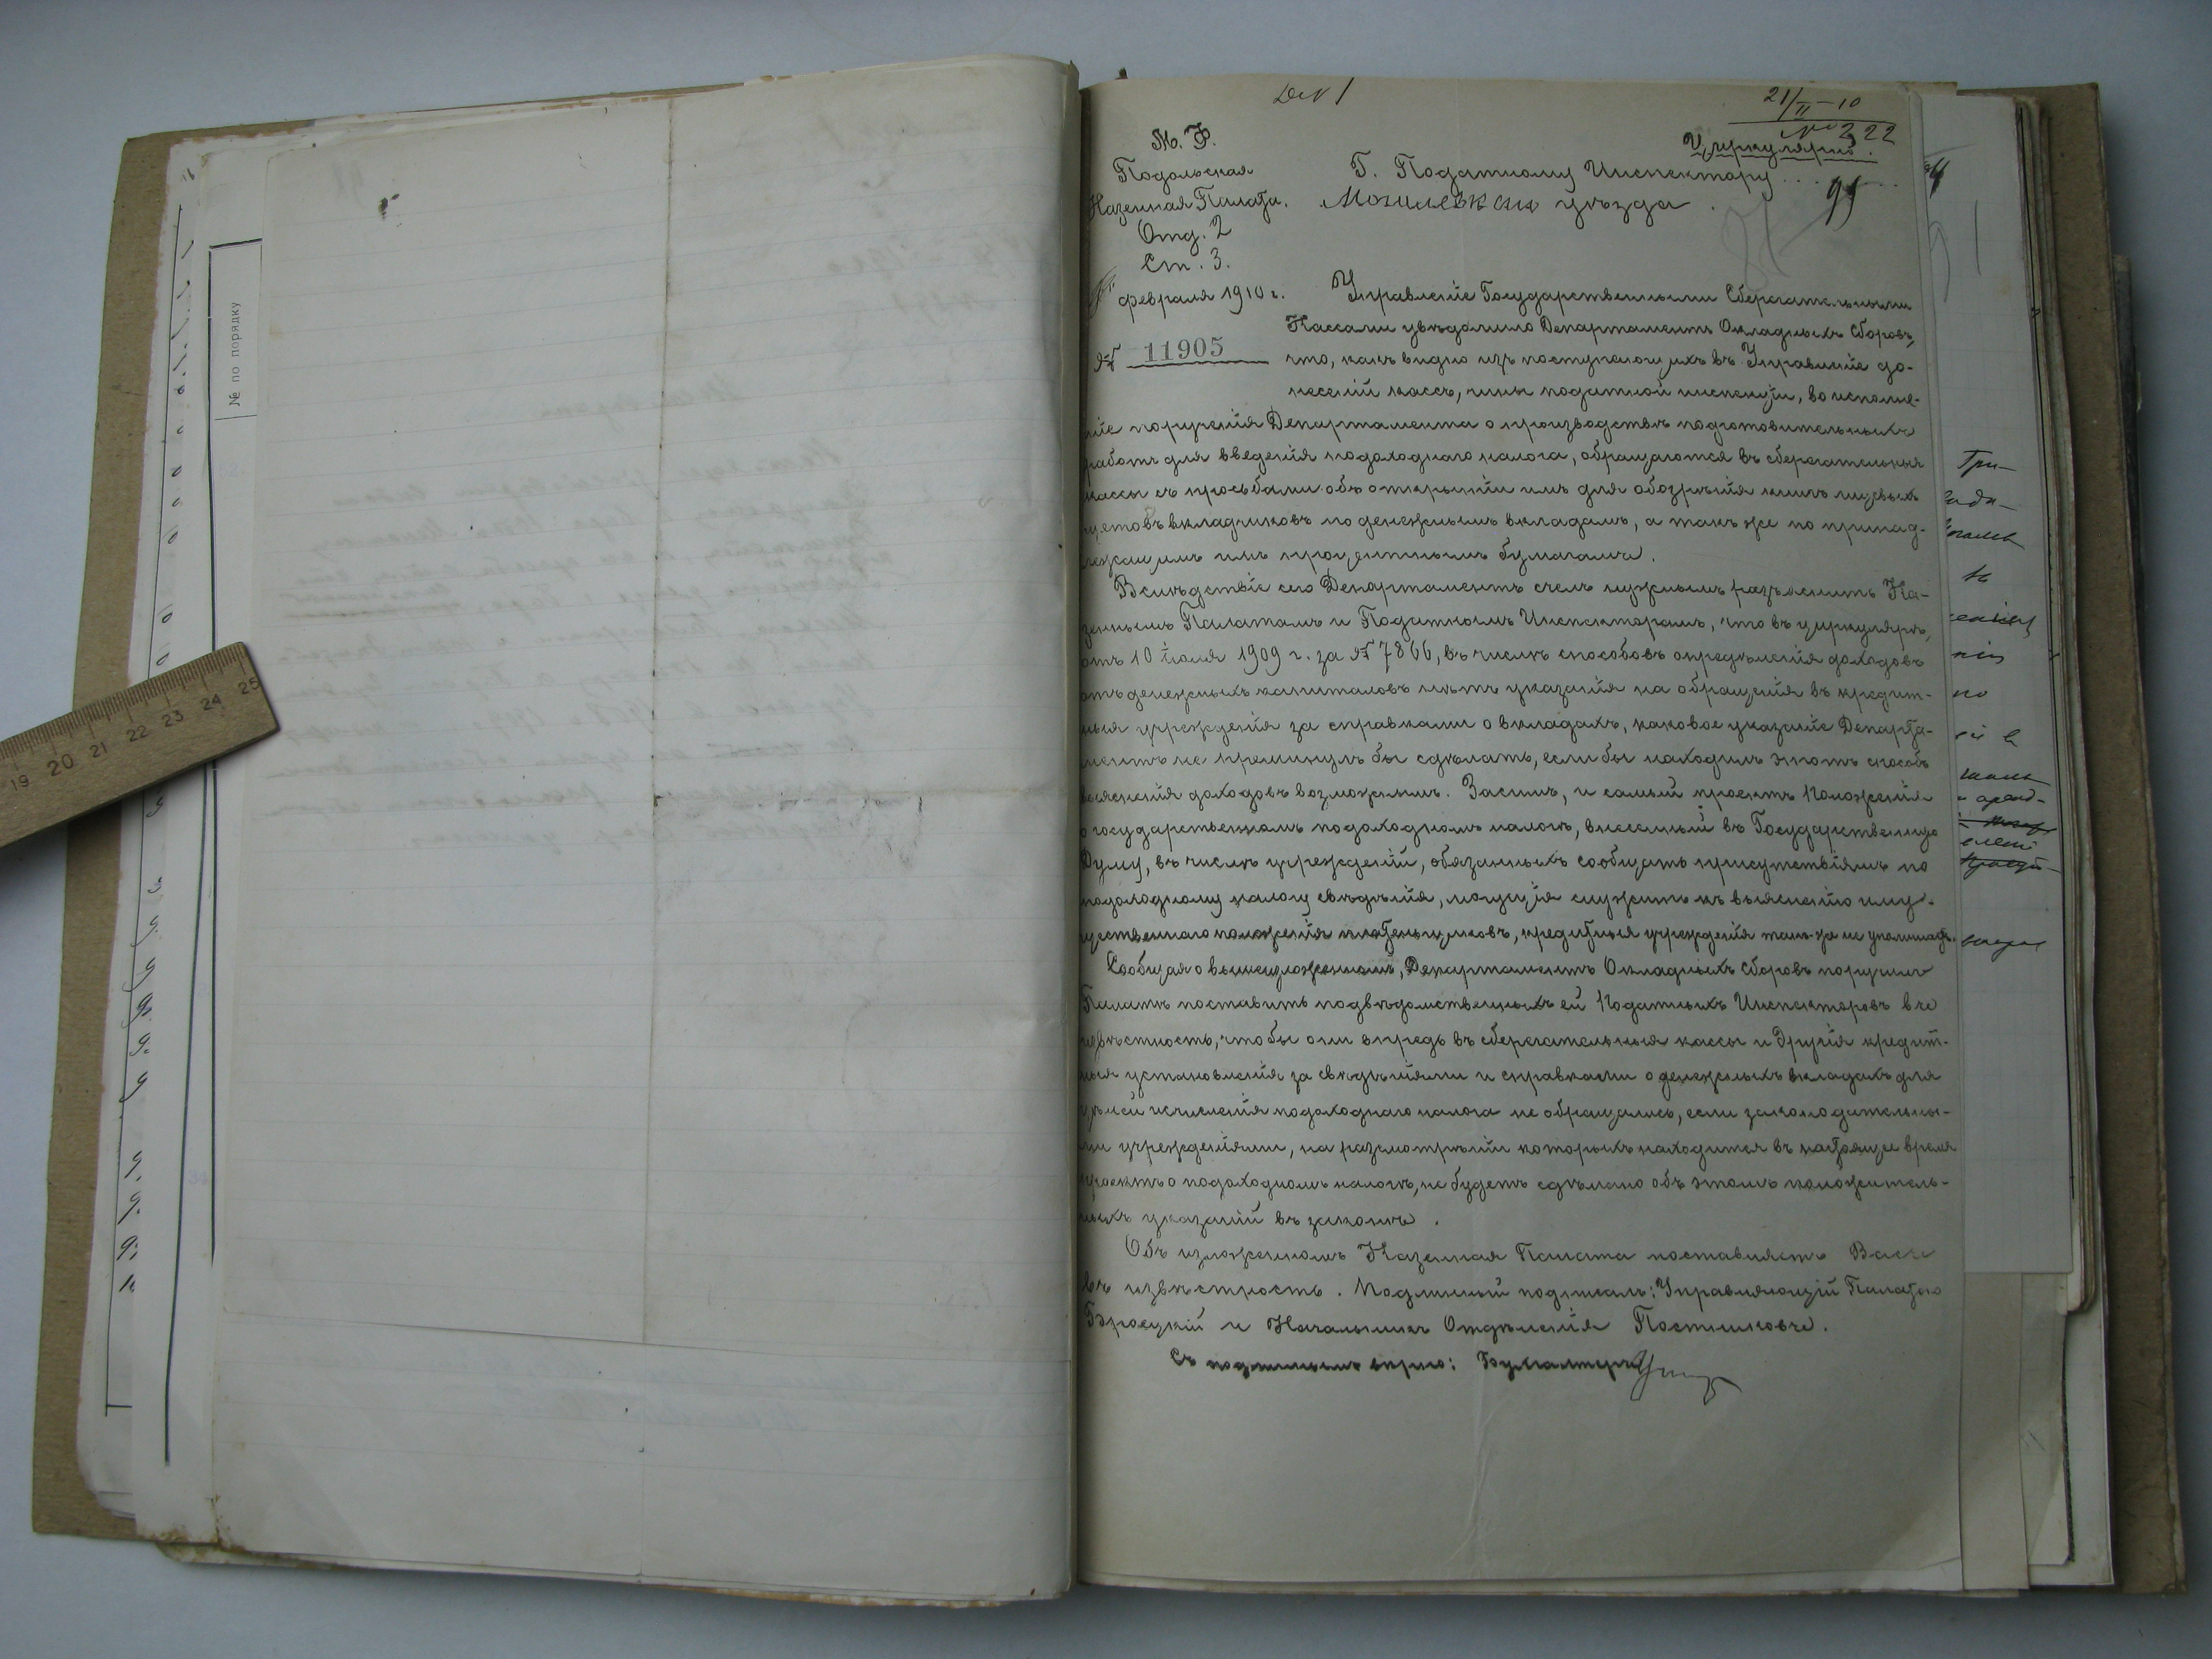 № по порядку
19 20 21 22 23 24 25
21/II-10
№ 322
М. Ф.
Циркулярно.
Подольская
Казенная Палата.
Отд. 2
Ст. 3.
Г. Податному Инспектору
Могилевскаго уѣзда.
95
февраля 1910 г.
№ 11905
Управленіе Государственными Сберегательными
Кассами увѣдомило Департаментъ Окладныхъ Сборовъ,
что, какъ видно изъ поступающихъ въ Управленіе до-
несеній кассъ, чины податной инспекціи, во исполне-
ніе порученія Департамента о производствѣ подготовительныхъ
работъ для введенія подоходнаго налога, обращаются въ сберегательныя
кассы съ просьбами объ открытіи имъ для обозрѣнія книгъ лицевыхъ
счетовъ вкладчиковъ по денежнымъ вкладамъ, а также по принад-
лежащимъ имъ процентнымъ бумагамъ.
Вслѣдствіе сего Департаментъ счелъ нужнымъ разъяснить Ка-
зеннымъ Палатамъ и Податнымъ Инспекторамъ, что въ циркулярѣ,
отъ 10 іюля 1909 г. за № 7866, въ числѣ способовъ опредѣленія доходовъ
отъ денежныхъ капиталовъ нѣтъ указанія на обращенія въ кредит-
ныя учрежденія за справками о вкладахъ, каковое указаніе Департа-
ментъ не преминулъ бы сдѣлать, если бы находилъ этотъ способъ
выясненія доходовъ возможнымъ. Засимъ, и самый проектъ Положенія
о государственномъ подоходномъ налогѣ, внесенный въ Государственную
Думу, въ числѣ учрежденій, обязанныхъ сообщать присутствіямъ по
подоходному налогу свѣдѣнія, могущія служить къ выясненію иму-
щественнаго положенія плательщиковъ, кредитныя учрежденія также не упоминаетъ.
Сообщая о вышеизложенномъ, Департаментъ Окладныхъ Сборовъ поручилъ
Палатѣ поставить подвѣдомственныхъ ей Податныхъ Инспекторовъ въ
извѣстность, чтобы они впредь въ сберегательныя кассы и другія кредит-
ныя установленія за свѣдѣніями и справками о денежныхъ вкладахъ для
цѣлей исчисленія подоходнаго налога не обращались, если законодательны-
ми учрежденіями, на разсмотрѣніи которыхъ находится въ настоящее время
проектъ о подоходномъ налогѣ, не будетъ сдѣлано объ этомъ положитель-
ныхъ указаній въ законѣ.
Объ изложенномъ Казенная Палата поставляетъ Васъ
въ извѣстность. Подлинный подписали: Управляющій Палатою
и Начальникъ Отдѣленія Постниковъ.
Съ подлиннымъ вѣрно: Бухгалтеръ